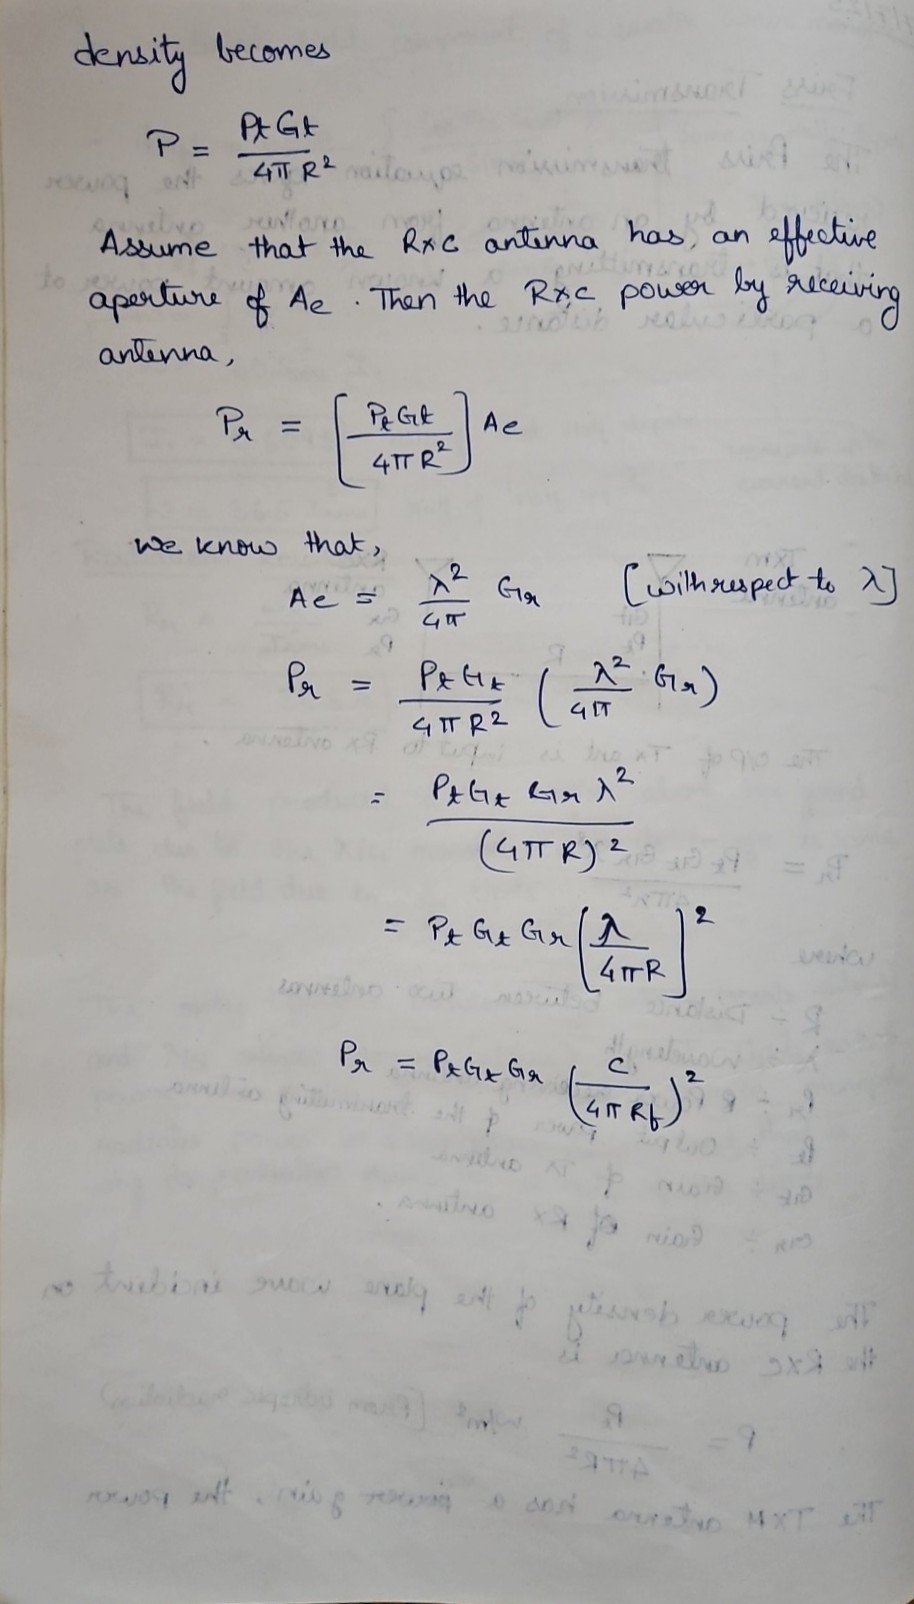 density becomes
P = PtGt / 4πR²
Assume that the RxC antenna has, an effective
aperture of Ae. Then the RxC power by receiving
antenna,
Pr = [PtGt / 4πR²] Ae
we know that,
Ae = λ²/4π Gr [with respect to λ]
Pr = PtGt / 4πR² (λ²/4π · Gr)
= PtGt Gr λ² / (4πR)²
= Pt Gt Gr [λ / 4πR]²
Pr = PtGtGr (c / 4πRf)²